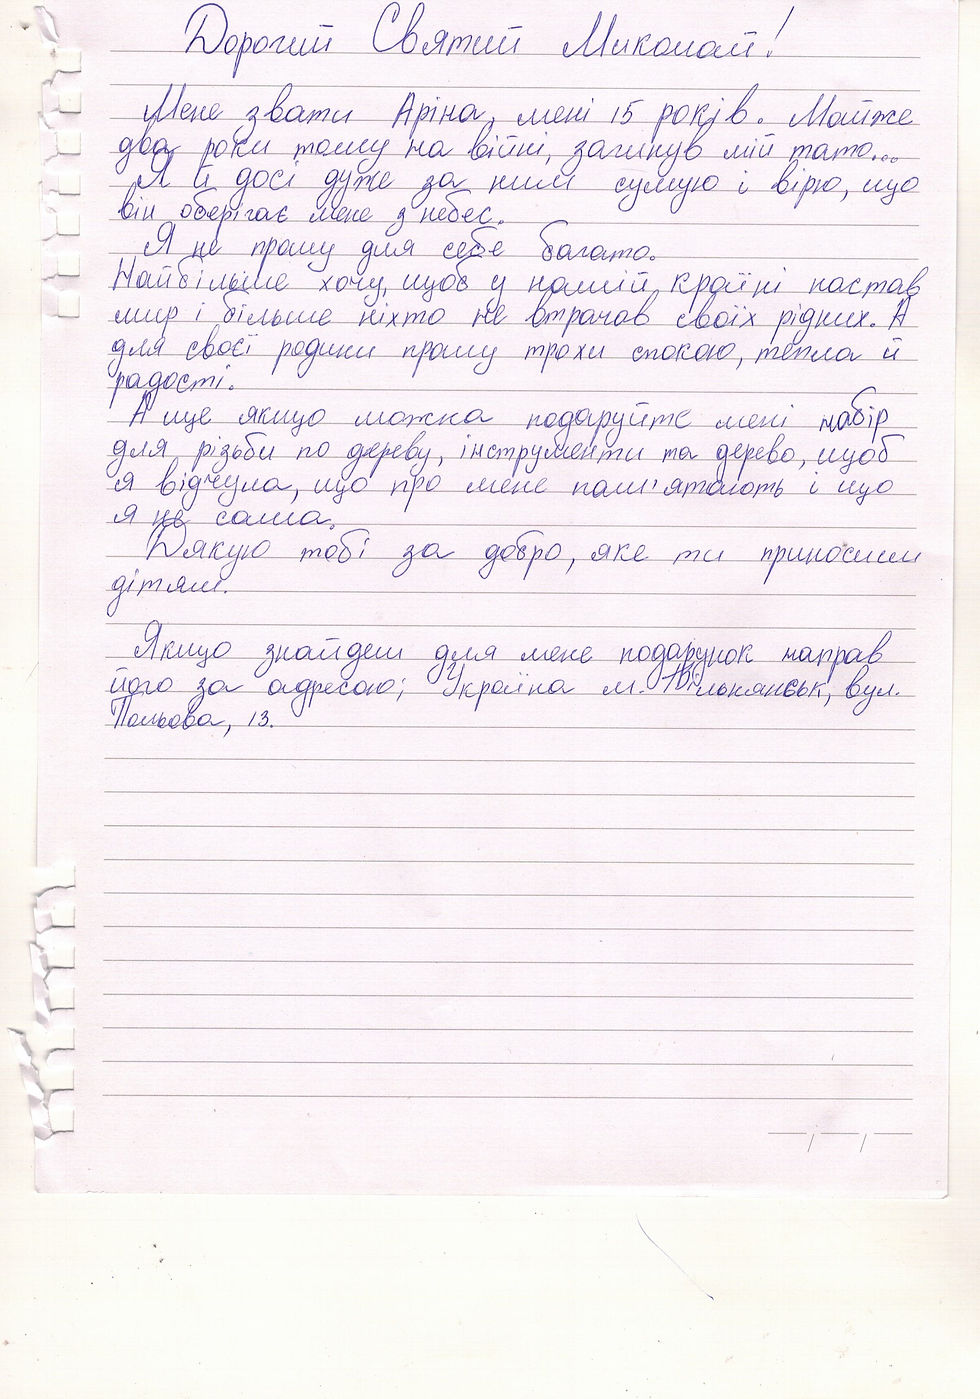 Дорогий Святий Миколай!
Мене звати Аріна, мені 15 років. Майже
два роки тому на війні, загинув мій тато...
Я й досі дуже за ним сумую і вірю, що
він оберігає мене з небес.
Я не прошу для себе багато.
Найбільше хочу, щоб у нашій країні настав
мир і більше ніхто не втрачав своїх рідних. А
для своєї родини прошу трохи спокою, тепла й
радості.
А ще якщо можна подаруйте мені набір
для різьби по дереву, інструменти та дерево, щоб
я відчула, що про мене пам'ятають і що
я не сама.
Дякую тобі за добро, яке ти приносиш
дітям.
Якщо знайдеш для мене подарунок направ
його за адресою; Україна м. Вільнянськ, вул.
Польова, 13.